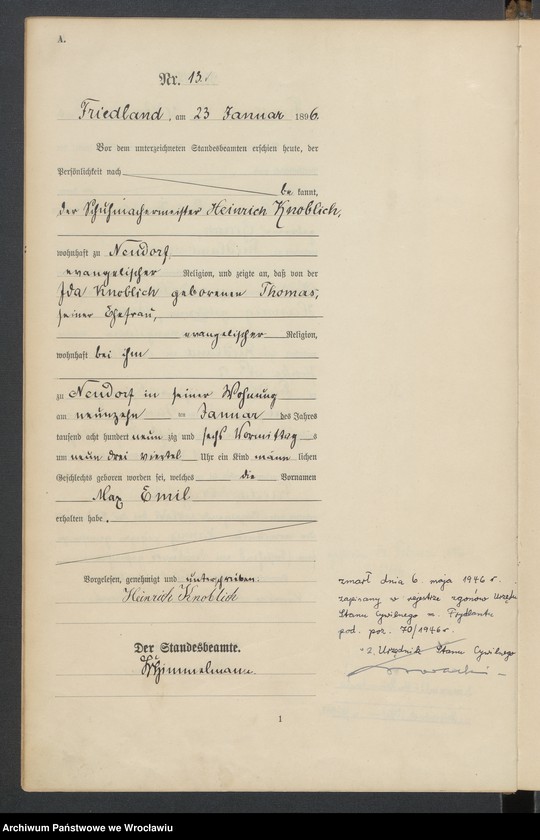 A.
Nr. 13.
Friedland, am 23 Januar 1896.
Vor dem unterzeichneten Standesbeamten erschien heute, der
Persönlichkeit nach
be kannt,
der Schuhmachermeister Heinrich Knoblich,
wohnhaft zu Neudorf,
evangelischer Religion, und zeigte an, daß von der
Ida Knoblich geborenen Thomas,
seiner Ehefrau,
evangelischer Religion,
wohnhaft bei ihm
zu Neudorf in seiner Wohnung
am neunzehn ten Januar des Jahres
tausend acht hundert neun zig und sechs Vormittag s
um neun drei viertel Uhr ein Kind männ lichen
Geschlechts geboren worden sei, welches die Vornamen
Max Emil
erhalten habe.
Vorgelesen, genehmigt und unterschrieben.
Heinrich Knoblich
Der Standesbeamte.
Schimmelmann.
zmarł dnia 6. maja 1946 r.
zapisany w rejestrze zgonów Urzędu
Stanu Cywilnego m. Frydlant
pod. poz. 70/1946 r.
Urzędnik Stanu Cywilnego
1
Archiwum Państwowe we Wrocławiu